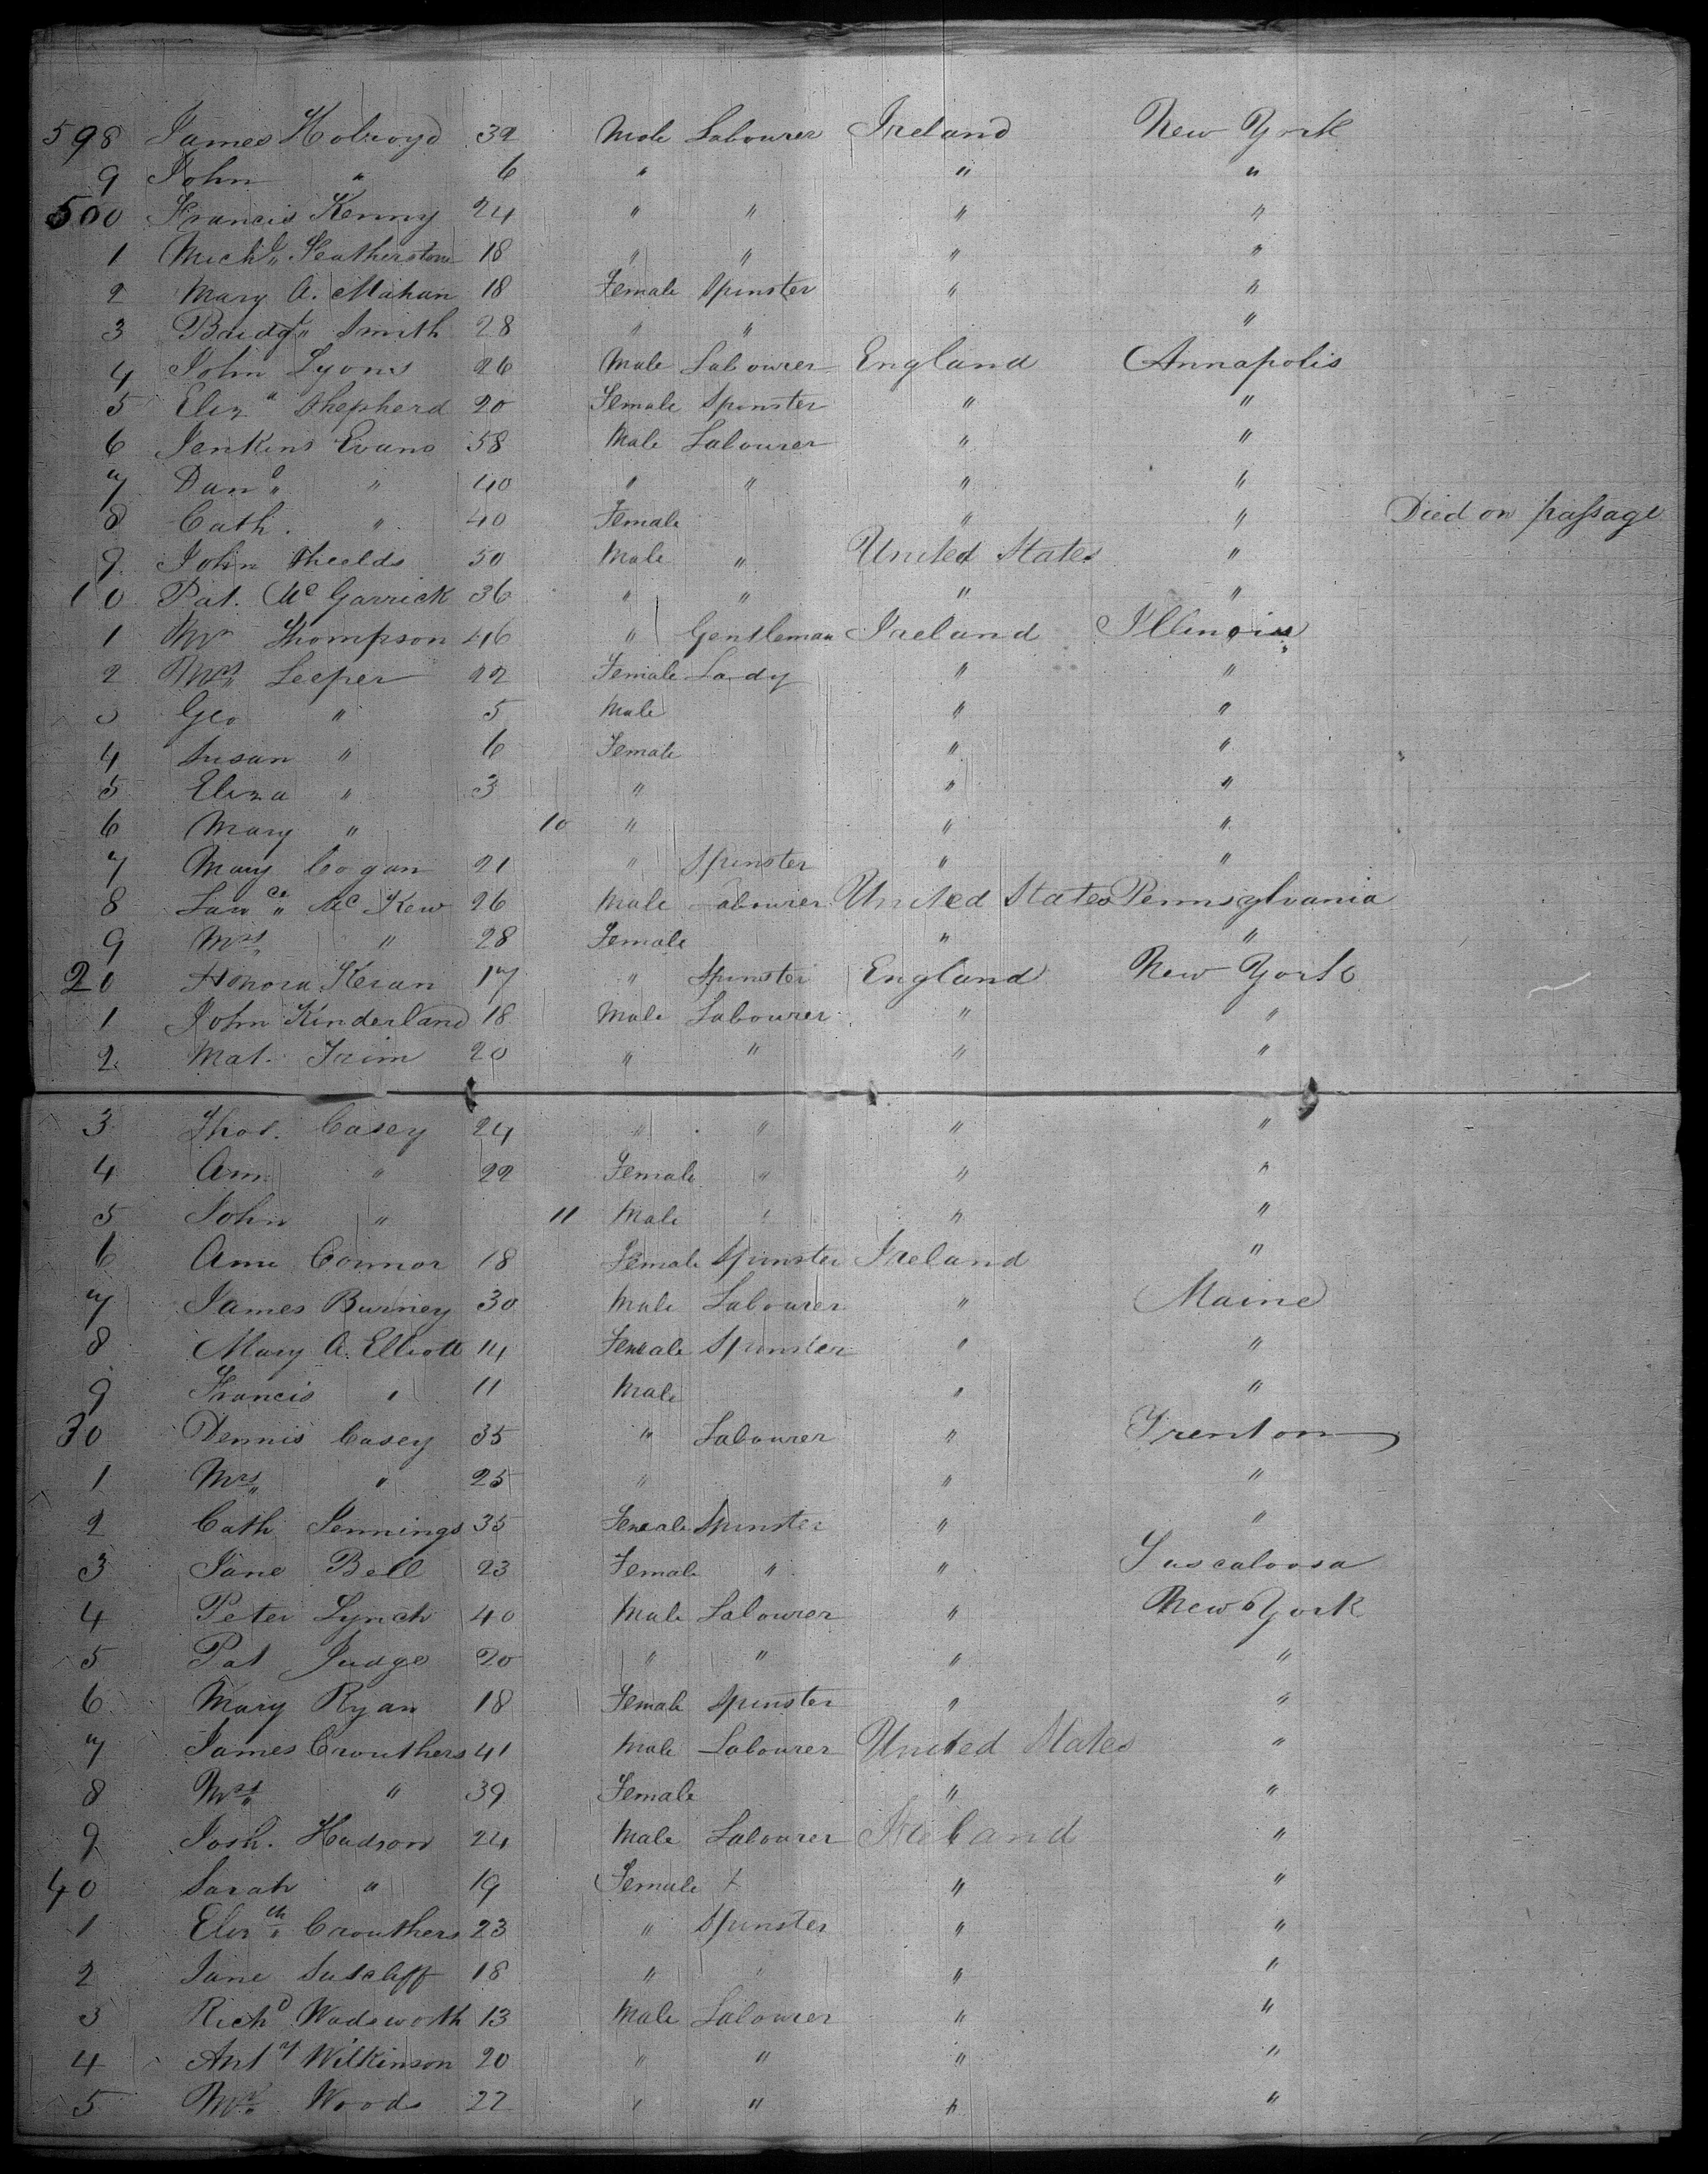 598 James Holroyd 32 Male Labourer Ireland New York
9 John " 6 " " "
500 Francis Kenny 24 " " " "
1 Michl Featherstone 18 " " " "
2 Mary A. Mahan 18 Female Spinster " "
3 Bridgt Smith 28 " " "
4 John Lyons 26 Male Labourer England Annapolis
5 Eliza Shepherd 20 Female Spinster " "
6 Jenkins Evans 58 Male Labourer " "
7 Danl " 40 " " " "
8 Cath. " 40 Female " " Died on passage
9 John Shields 50 Male " United States "
10 Pat. Mc Garrick 36 " " " "
1 Mr Thompson 46 " Gentleman Ireland Illinois
2 Mrs Leeper 22 Female Lady " "
3 Geo " 5 Male " "
4 Susan " 6 Female " "
5 Eliza " 3 " " "
6 Mary " 10 " " "
7 Mary Cogan 21 " Spinster " "
8 Lawce Mc Kew 26 Male Labourer United States Pennsylvania
9 Mrs " 28 Female " "
20 Honora Keran 17 " Spinster England New York
1 John Kinderland 18 Male Labourer " "
2 Mat. Trim 20 " " " "
3 Thos. Casey 24 " " " "
4 Ann " 22 Female " " "
5 John " 11 Male " " "
6 Ann Connor 18 Female Spinster Ireland "
7 James Burney 30 Male Labourer " Maine
8 Mary A. Elliott 14 Female Spinster " "
9 Francis " 11 Male " "
30 Dennis Casey 35 " Labourer " Trenton
1 Mrs " 25 " " "
2 Cath Jennings 35 Female Spinster " "
3 Jane Bell 23 Female " " Tuscaloosa
4 Peter Lynch 40 Male Labourer " New York
5 Pat Judge 20 " " " "
6 Mary Ryan 18 Female Spinster " "
7 James Crouthers 41 Male Labourer United States "
8 Mrs " 39 Female " "
9 Josh. Hudson 24 Male Labourer Ireland "
40 Sarah " 19 Female " "
1 Elizth Crouthers 23 " Spinster " "
2 Jane Sutcliff 18 " " " "
3 Richd Wadsworth 13 Male Labourer " "
4 Anty Wilkinson 20 " " " "
5 Mr Woods 22 " " " "